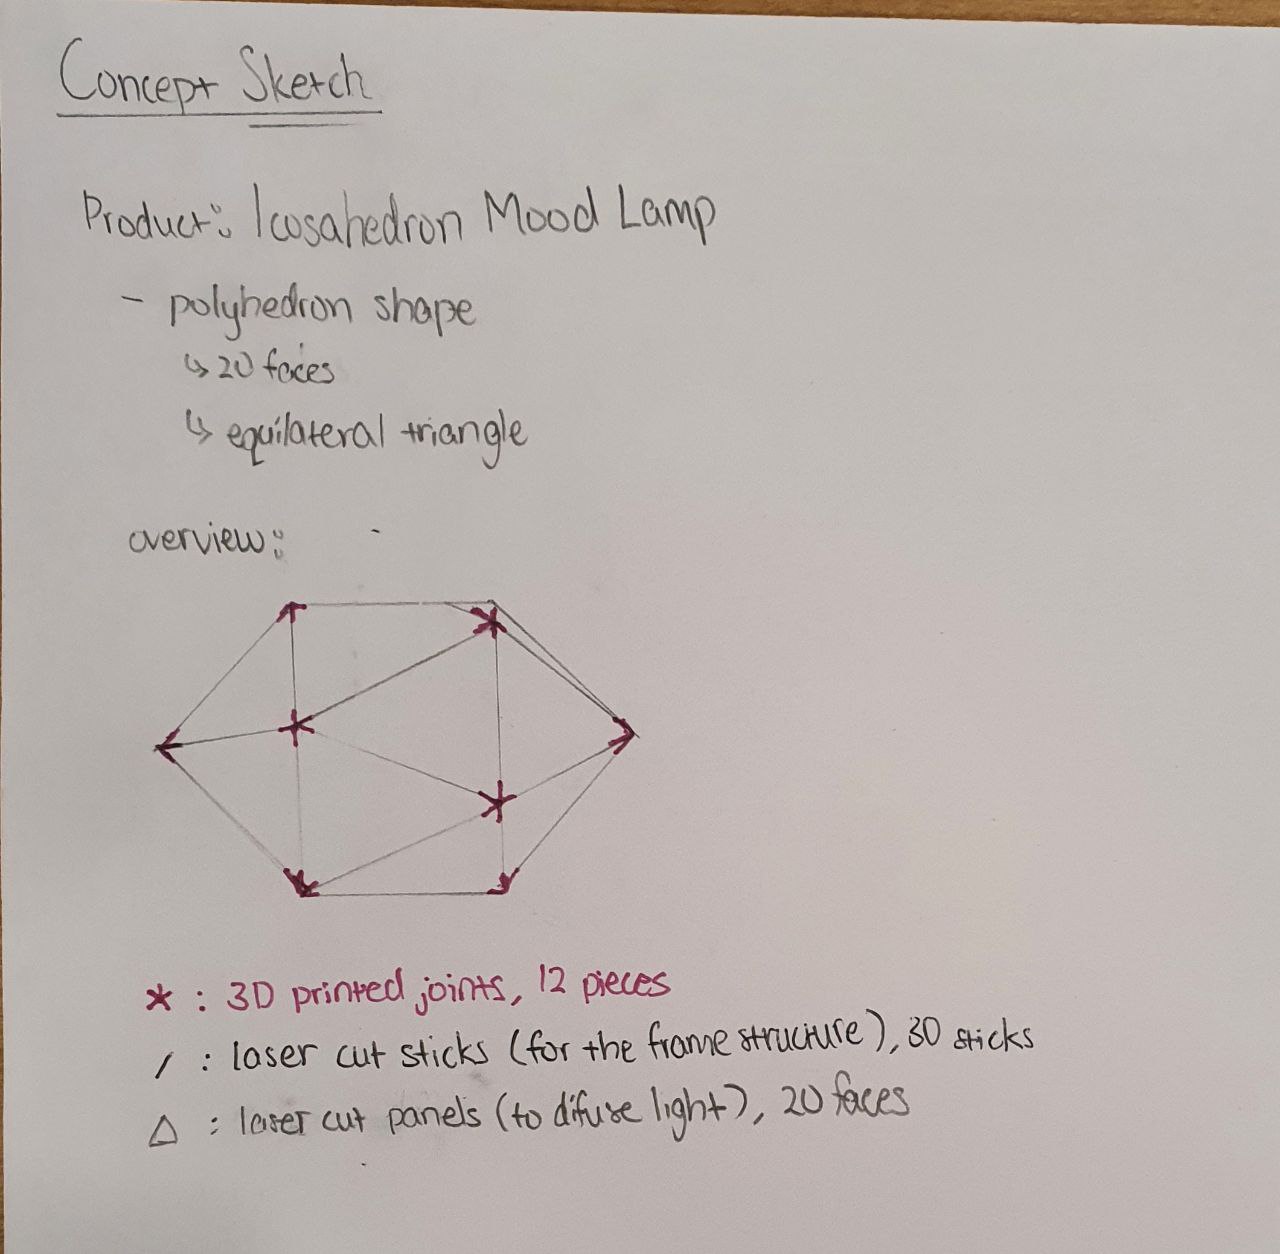 Concept Sketch
Product: Icosahedron Mood Lamp
- polyhedron shape
↳ 20 faces
↳ equilateral triangle
overview:
* : 3D printed joints, 12 pieces
/ : laser cut sticks (for the frame structure), 30 sticks
△ : laser cut panels (to difuse light), 20 faces